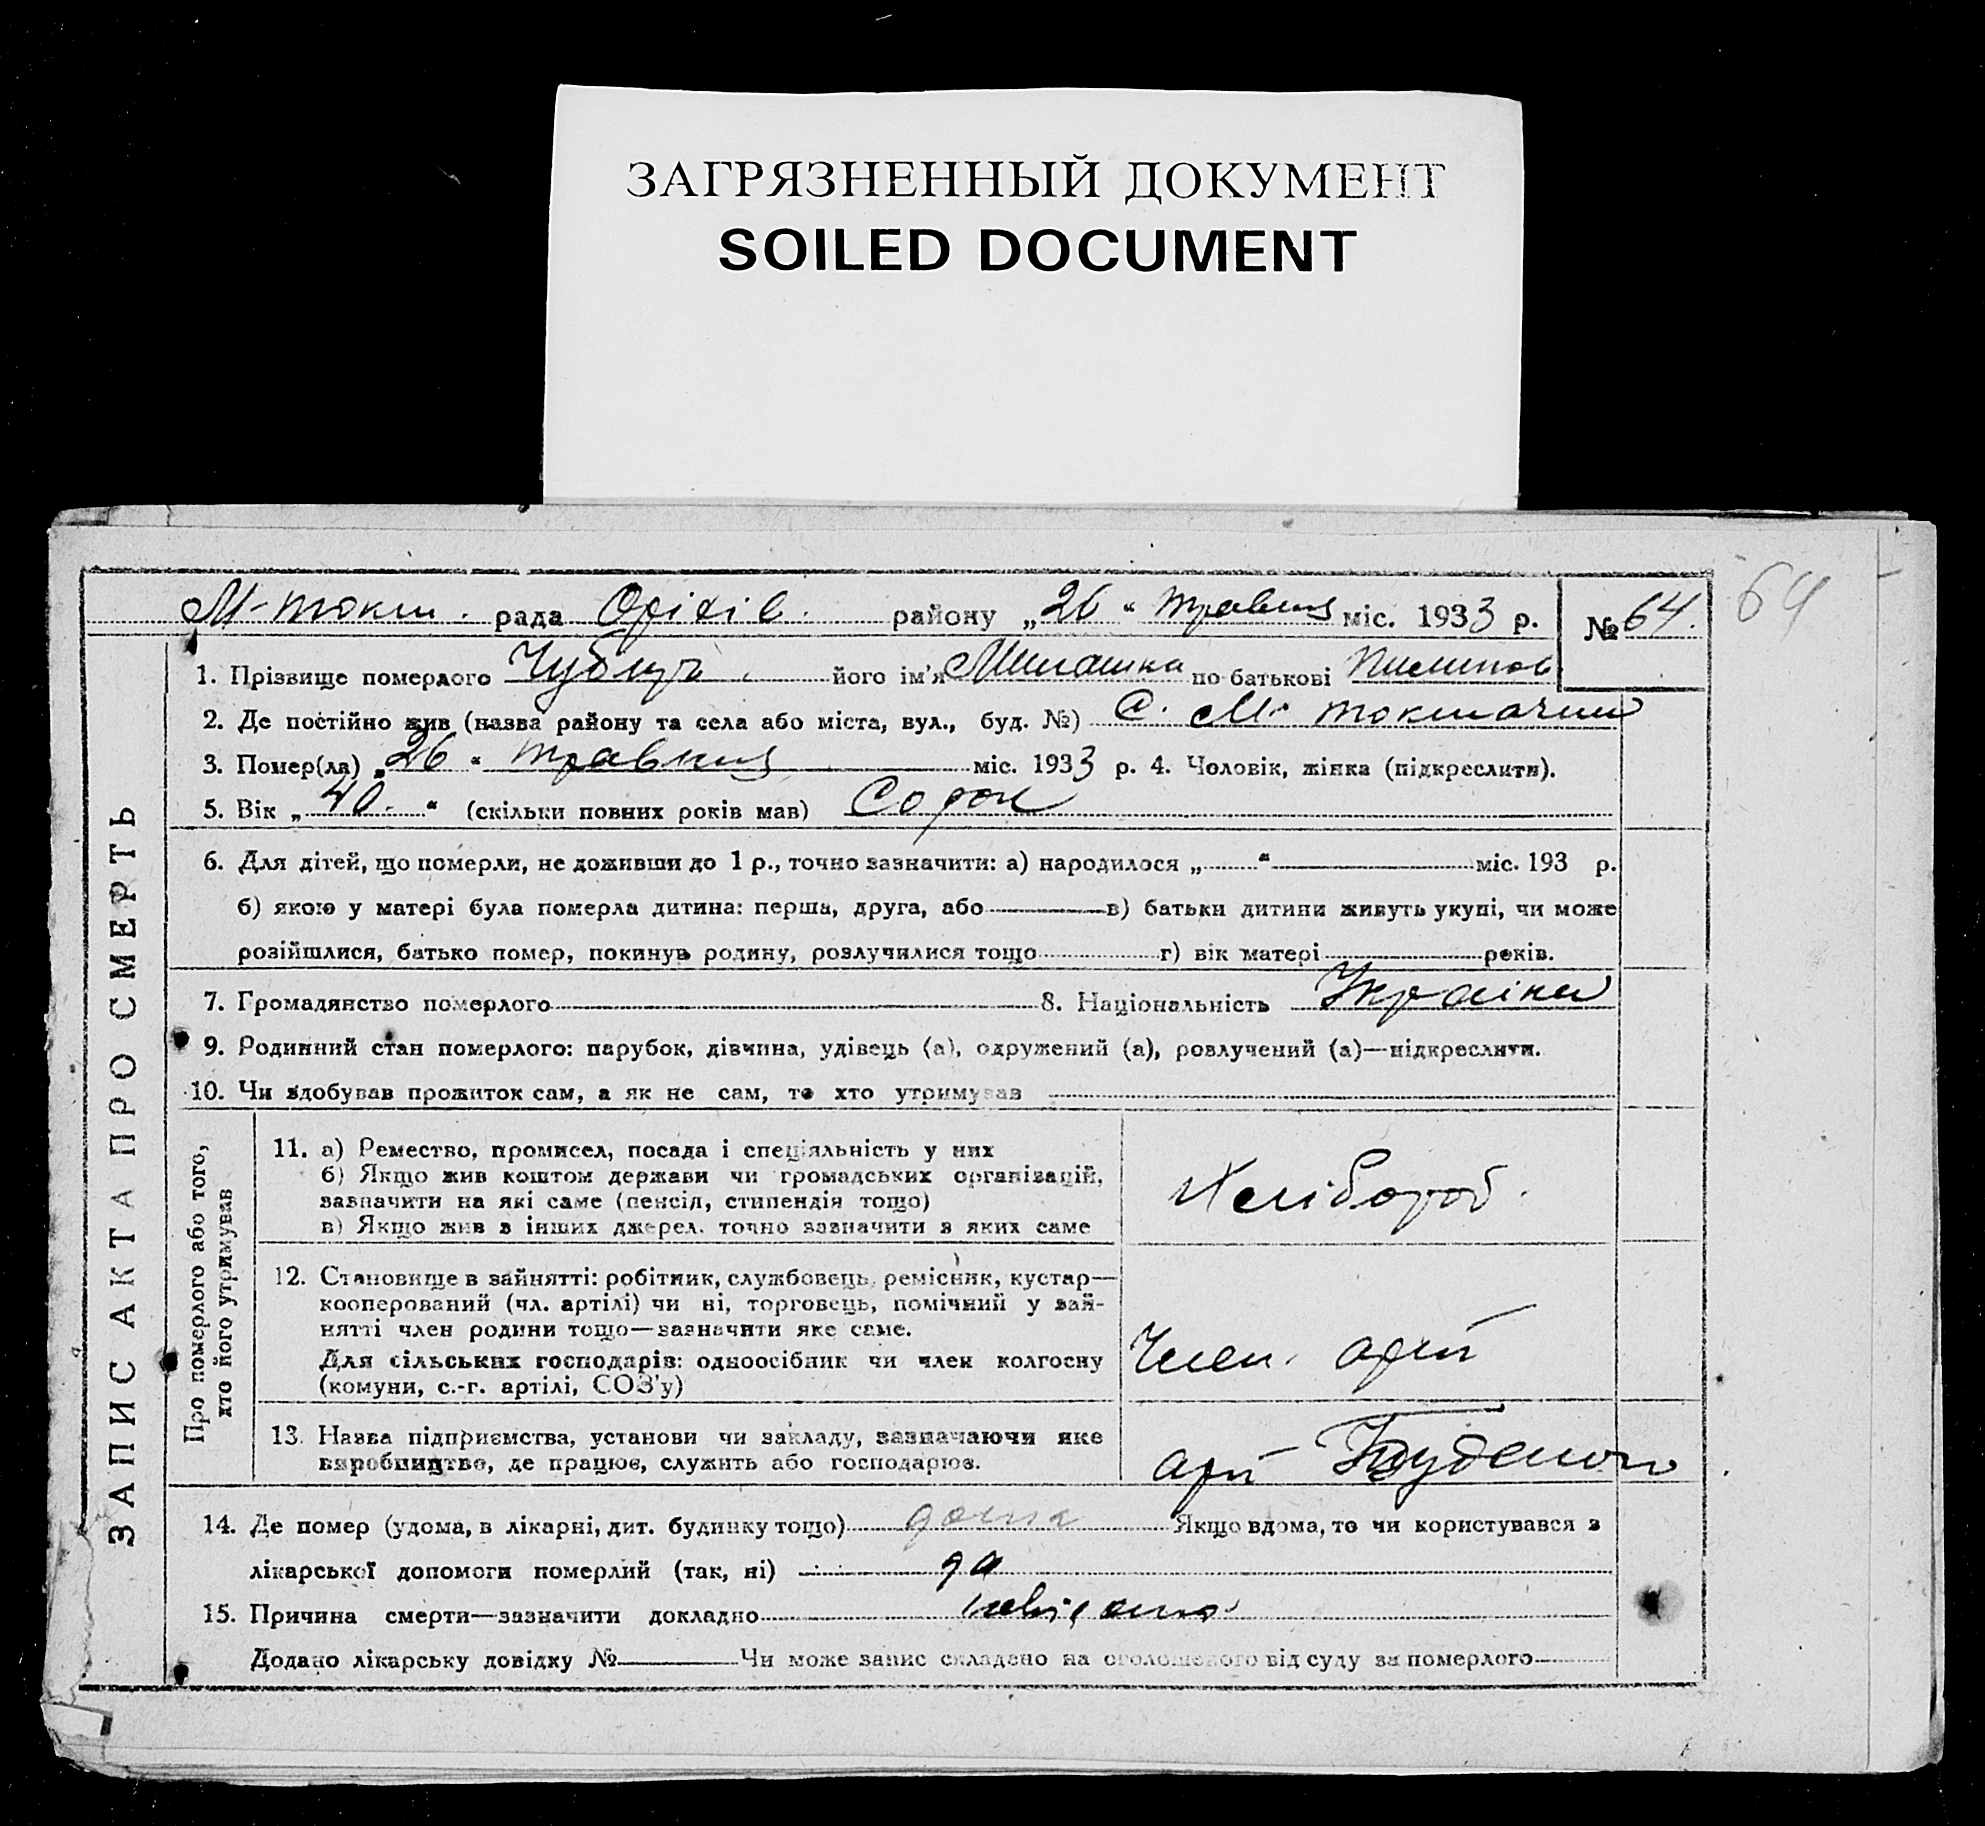 ЗАГРЯЗНЕННЫЙ ДОКУМЕНТ
SOILED DOCUMENT
64
М-токм. рада Оріхів. району „26“ травня міс. 1933 р. № 64.
1. Прізвище померлого його ім'я по батькові Пилипов.
2. Де постійно жив (назва району та села або міста, вул., буд. №) С. М. токмачии
3. Помер(ла) „26“ травня міс. 1933 р. 4. Чоловік, жінка (підкреслити).
5. Вік „40.“ (скільки повних років мав) Сорок
6. Для дітей, що померли, не доживши до 1 р., точно зазначити: а) народилося „ “ міс. 193 р.
б) якою у матері була померла дитина: перша, друга, або в) батьки дитини живуть укупі, чи може
розійшлися, батько помер, покинув родину, розлучилися тощо г) вік матері років.
7. Громадянство померлого 8. Національність Україн
9. Родинний стан померлого: парубок, дівчина, удівець (а), одружений (а), розлучений (а)—підкреслити.
10. Чи здобував прожиток сам, а як не сам, то хто утримував
ЗАПИС АКТА ПРО СМЕРТЬ
Про померлого або того,
хто його утримував
11. а) Ремество, промисел, посада і спеціяльність у них
б) Якщо жив коштом держави чи громадських організацій,
зазначити на які саме (пенсія, стипендія тощо)
в) Якщо жив з інших джерел. точно зазначити з яких саме
Хлібороб.
12. Становище в зайнятті: робітник, службовець, ремісник, кустар—
кооперований (чл. артілі) чи ні, торговець, помічний у зай-
нятті член родини тощо—зазначити яке саме.
Для сільських господарів: одноосібник чи член колгоспу
(комуни, с.-г. артілі, СОЗ'у)
Член. арті
13. Назва підприємства, установи чи закладу, зазначаючи яке
виробництво, де працює, служить або господарює.
арт Буденого
14. Де помер (удома, в лікарні, дит. будинку тощо) дома Якщо вдома, то чи користувався з
лікарської допомоги померлий (так, ні) да
15. Причина смерти—зазначити докладно
Додано лікарську довідку № Чи може запис складено на оголошеного від суду за померлого